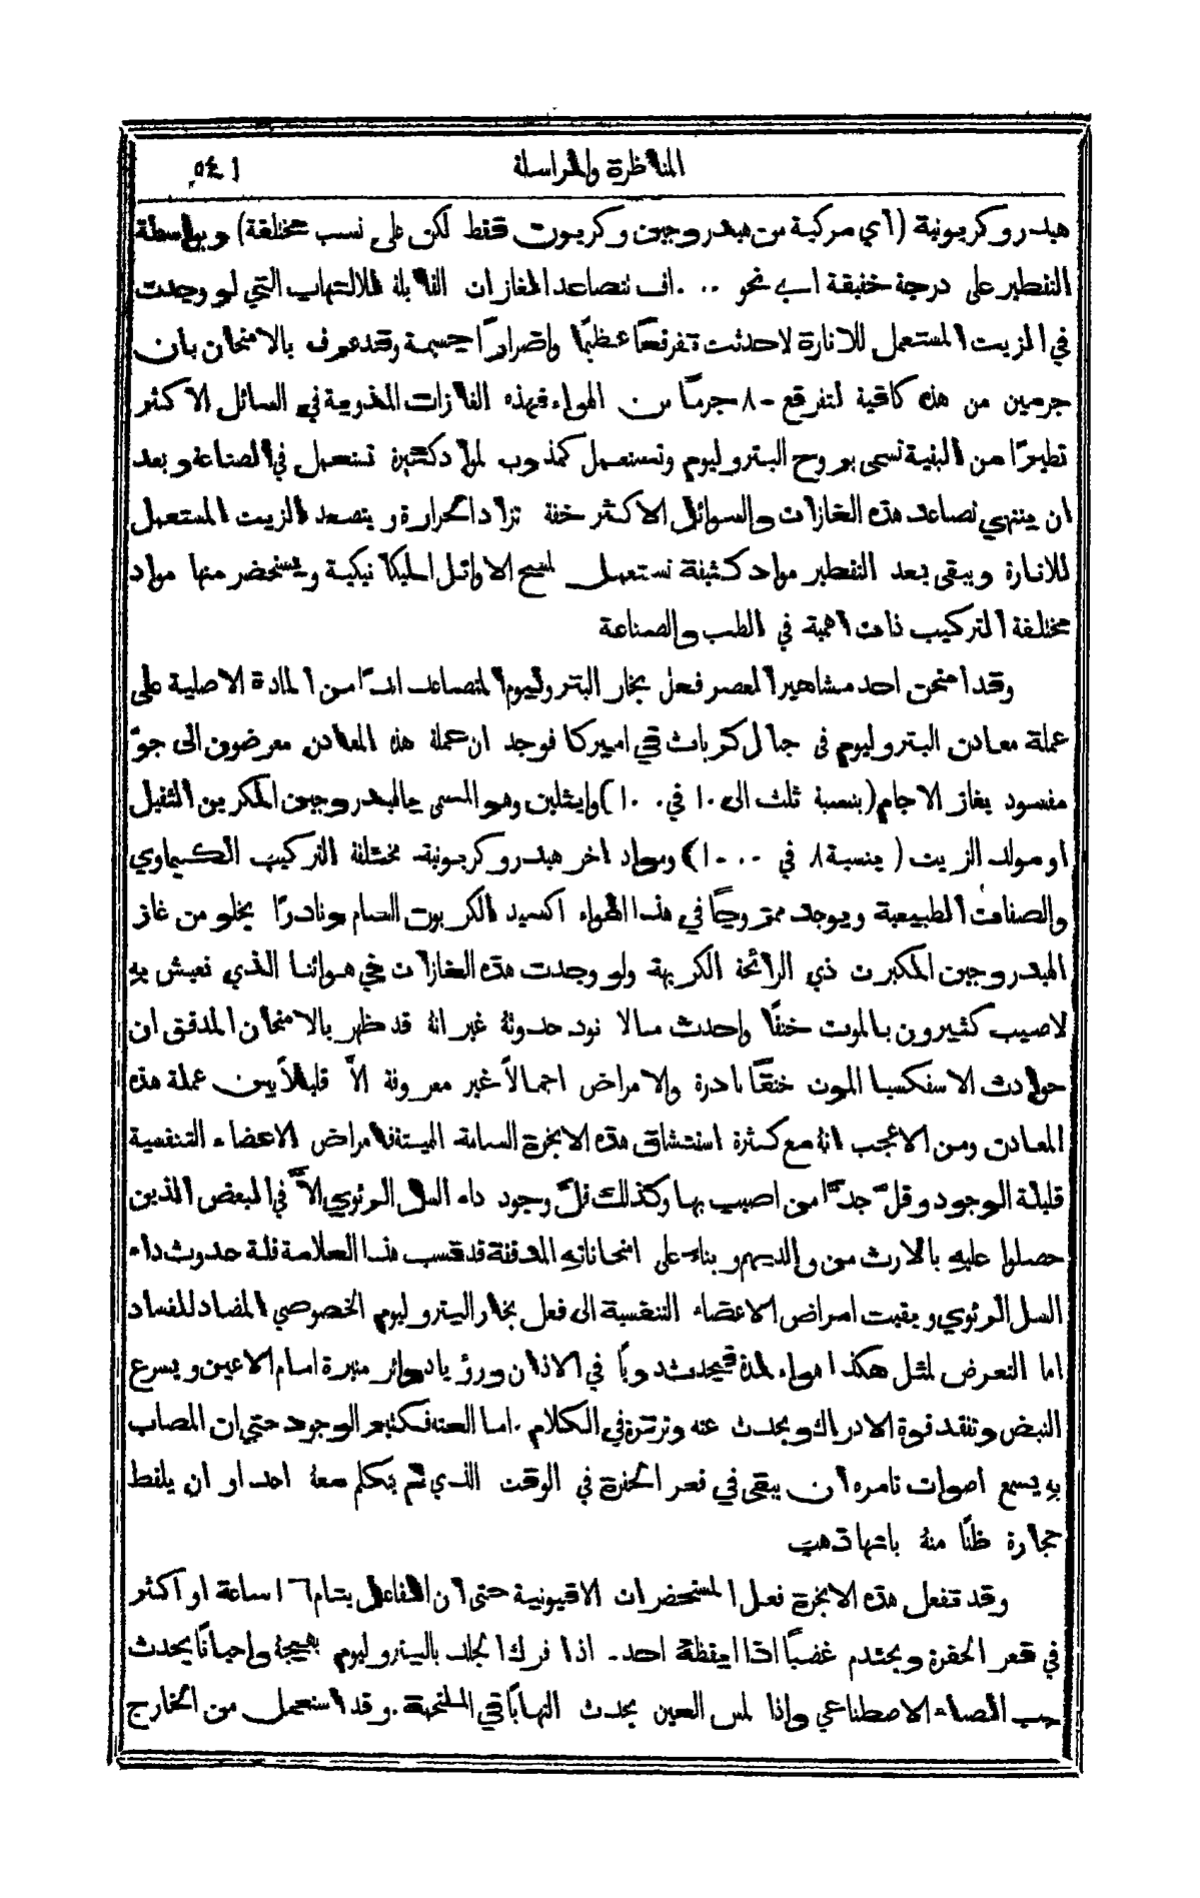 المناظرة والمراسلة ٥٤١
هيدروكربونية (اي مركبة من هيدروجين وكربون فقط لكن على نسب مختلفة) وبواسطة
التقطير على درجة خفيفة اي نحو ١٠٠ف تتصاعد الغازات القابلة للالتهاب التي لو وجدت
في الزيت المستعمل للانارة لاحدثت تفرقعًا عظيمًا واضرارًا جسيمة وقد عرف بالامتحان بان
جرمين من هذه كافية لتفرقع ٨٠ جرمًا من الهواء فهذه الغازات المذوبة في السائل الاكثر
تطيرًا من البقية تسمى بروح البتروليوم وتستعمل كمذوب لمواد كثيرة تستعمل في الصناعة وبعد
ان ينتهي تصاعد هذه الغازات والسوائل الاكثر خفة تزاد الحرارة ويتصعد الزيت المستعمل
للانارة ويبقى بعد التقطير مواد كثيفة تستعمل لمسح الاوائل الميكانيكية ويستحضر منها مواد
مختلفة التركيب ذات اهمية في الطب والصناعة
وقد امتحن احد مشاهير العصر فعل بخار البتروليوم المتصاعد انفًا من المادة الاصلية على
عملة معادن البتروليوم في جبال كربات في اميركا فوجد ان عملة هذه المعادن معرضون الى جوّ
مفسود بغاز الاجام (بنسبة ثلث الى ١٠ في ١٠٠) وايثلين وهو المسمى بالهيدروجين المكربن الثقيل
او مولد الزيت (بنسبة ٨ في ١٠٠٠) ومواد اخر هيدروكربونية مختلفة التركيب الكيماوي
والصفات الطبيعية ويوجد ممتزوجًا في هذا الهواء اكسيد الكربون السام ونادرًا يخلو من غاز
الهيدروجين المكبرت ذي الرائحة الكريهة ولو وجدت هذه الغازات في هوائنا الذي نعيش به
لاصيب كثيرون بالموت خنقًا واحدث ما لا نود حدوثه غير انه قد ظهر بالامتحان المدقق ان
حوادث الاسفكسيا الموت خنقًا نادرة والامراض اجمالاً غير معروفة الاّ قليلاً بين عملة هذه
المعادن ومن الاعجب انه مع كثرة استنشاق هذه الابخرة السامة المميتة فامراض الاعضاء التنفسية
قليلة الوجود وقلّ جدًّا من اصيب بها وكذلك قلّ وجود داء السل الرئوي الاّ في البعض الذين
حصلوا عليه بالارث من والديهم وبناء على امتحاناته المدققة قد نسب هذا العلامة قلة حدوث داء
السل الرئوي وبقيت امراض الاعضاء التنفسية الى فعل بخار البتروليوم الخصوصي المضاد للفساد
اما التعرض لمثل هكذا هواء لمدة فيحدث دويًا في الاذان ورؤيا دوائر منيرة امام الاعين ويسرع
النبض وتفقد قوة الادراك ويحدث عنه وترترة في الكلام . اما العته فكثير الوجود حتى ان المصاب
به يسمع اصوات تامره ان يبقى في قعر الحفرة في الوقت الذي لم يتكلم معه احد او ان يلقط
حجارة ظنًّا منه بانها ذهب
وقد تفعل هذه الابخرة فعل المستحضرات الافيونية حتى ان الفاعل ينام ١٦ ساعة او اكثر
في قعر الحفرة ويحتدم غضبًا اذا ايقظه احد. اذا فرك الجلد بالبتروليوم يهيجه واحيانًا يحدث
حب الصباء الاصطناعي واذا لمس العين يحدث التهابًا في الملتحمة . وقد استعمل من الخارج